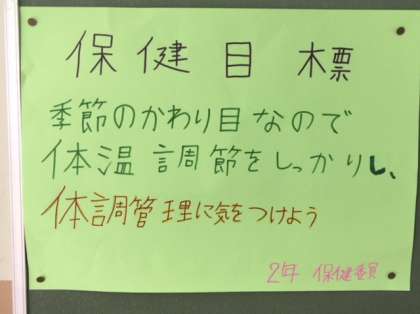 保健目標
季節のかわり目なので
体温調節をしっかりし、
体調管理に気をつけよう
2年 保健委員